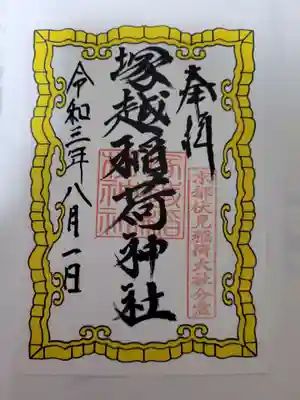 奉拝
京都伏見稲荷大社分霊
塚越稲荷神社
令和三年八月一日